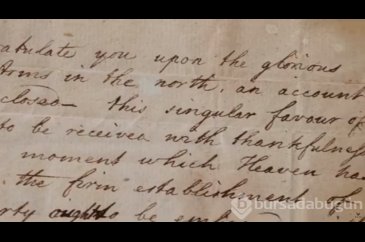 atulate you upon the glorious
Arms in the north, an account
closed— this singular favour of
to be received with thankfulness
moment which Heaven has
the firm establishment of
rty ought to be
bursadabugün